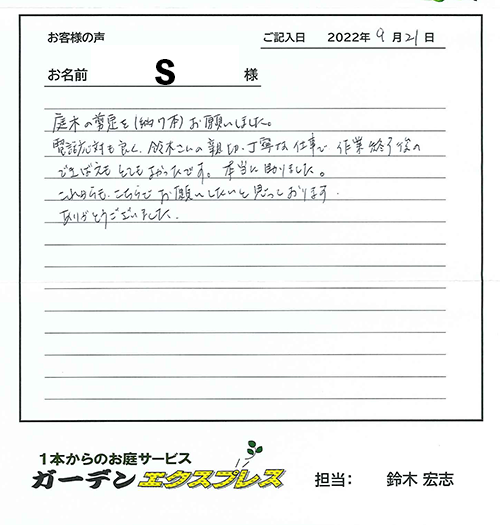 お客様の声
ご記入日 2022年 9月 21日
お名前 S 様
庭木の剪定を(約7本)お願いしました。
電話応対も良く、鈴木さんの親切、丁寧なお仕事で 作業終了後の
できばえもとてもよかったです。本当に助かりました。
これからも、こちらでお願いしたいと思っております。
ありがとうございました。
1本からのお庭サービス
ガーデンエクスプレス 担当: 鈴木 宏志